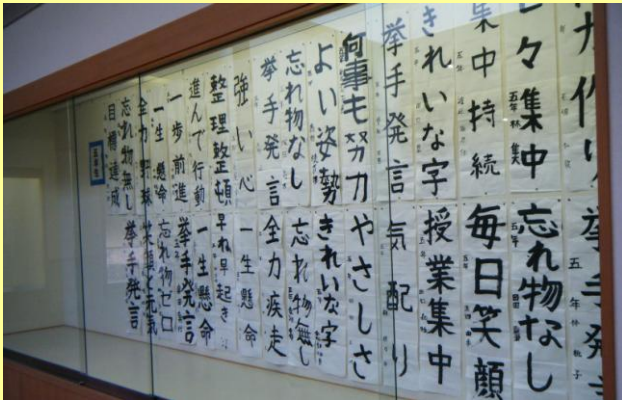 力作り
々集中
集中持続
きれいな字
挙手発言
何事も努力
よい姿勢
忘れ物なし
挙手発言
強い心
整理整頓
進んで行動
一歩前進
一生懸命
全力野球
忘れ物無し
目標達成
挙手発
五年
忘れ物なし
五年
毎日笑顔
授業集中
気配り
やさしさ
きれいな字
忘れ物無し
全力疾走
一生懸命
早ね早起き
一生懸命
挙手発言
忘れ物ゼロ
笑顔と元気
挙手発言
五年生